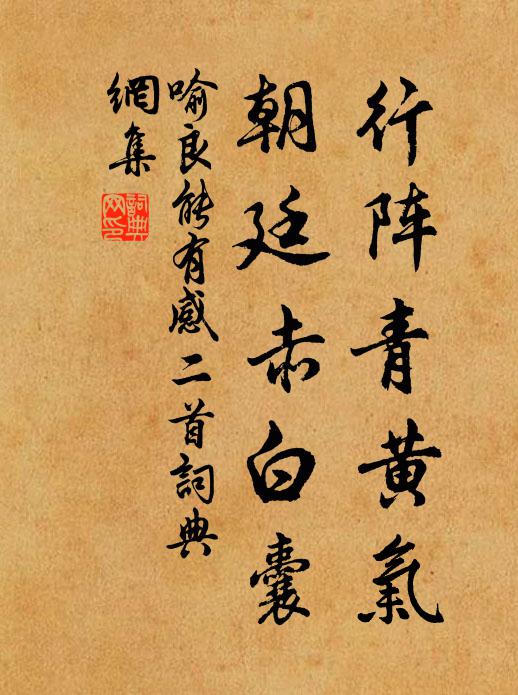 行阵青黄氣
朝廷赤白囊
喻良能有感二首詞典
網集
詞典
网印